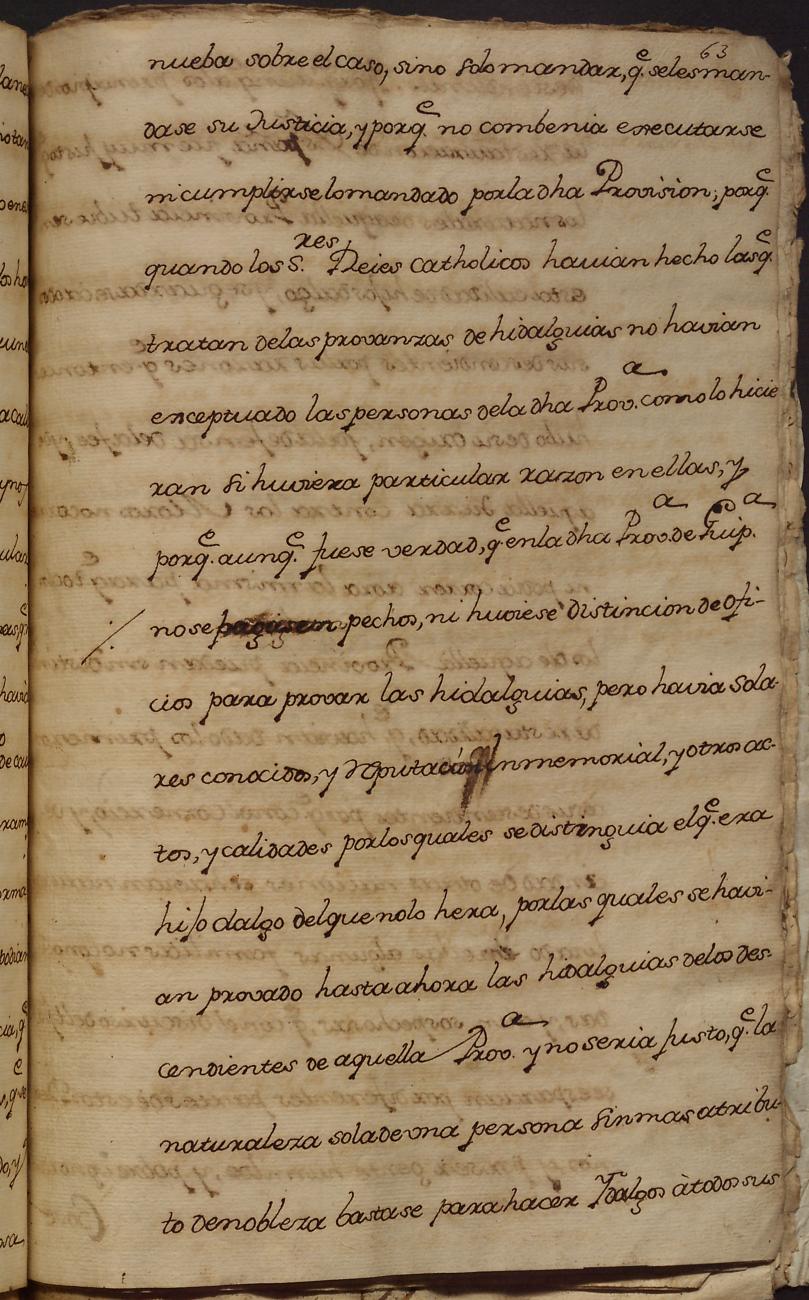 63
nueba sobre el caso, sino solo mandar, q.e se les man-
dase su Justicia, y porq.e no combenia executarse
ni cumplirse lo mandado por la dha Provision; porq.e
quando los S.res Reies Catholicos havian hecho las q.e
tratan de las provanzas de hidalguias no havian
exceptuado las personas de la dha Prov.a como lo hicie
ran si huviera particular razon en ellas, y
porq.e aunq.e fuese verdad, q.e en la dha Prov.a de Guip.a
no se pagasen pechos, ni huviese distincion de Ofi-
cios para provar las hidalguias, pero havia sola-
res conocidos, y Reputación inmemorial, y otros ac-
tos, y calidades por los quales se distinguia el q.e era
hijo dalgo del que no lo hera, por las quales se havi-
an provado hasta ahora las hidalguias de los des-
cendientes de aquella Prov.a y no seria justo, q.e la
naturaleza sola de una persona sin mas atribu-
to de nobleza bastase para hacer Ydalgos à todos sus